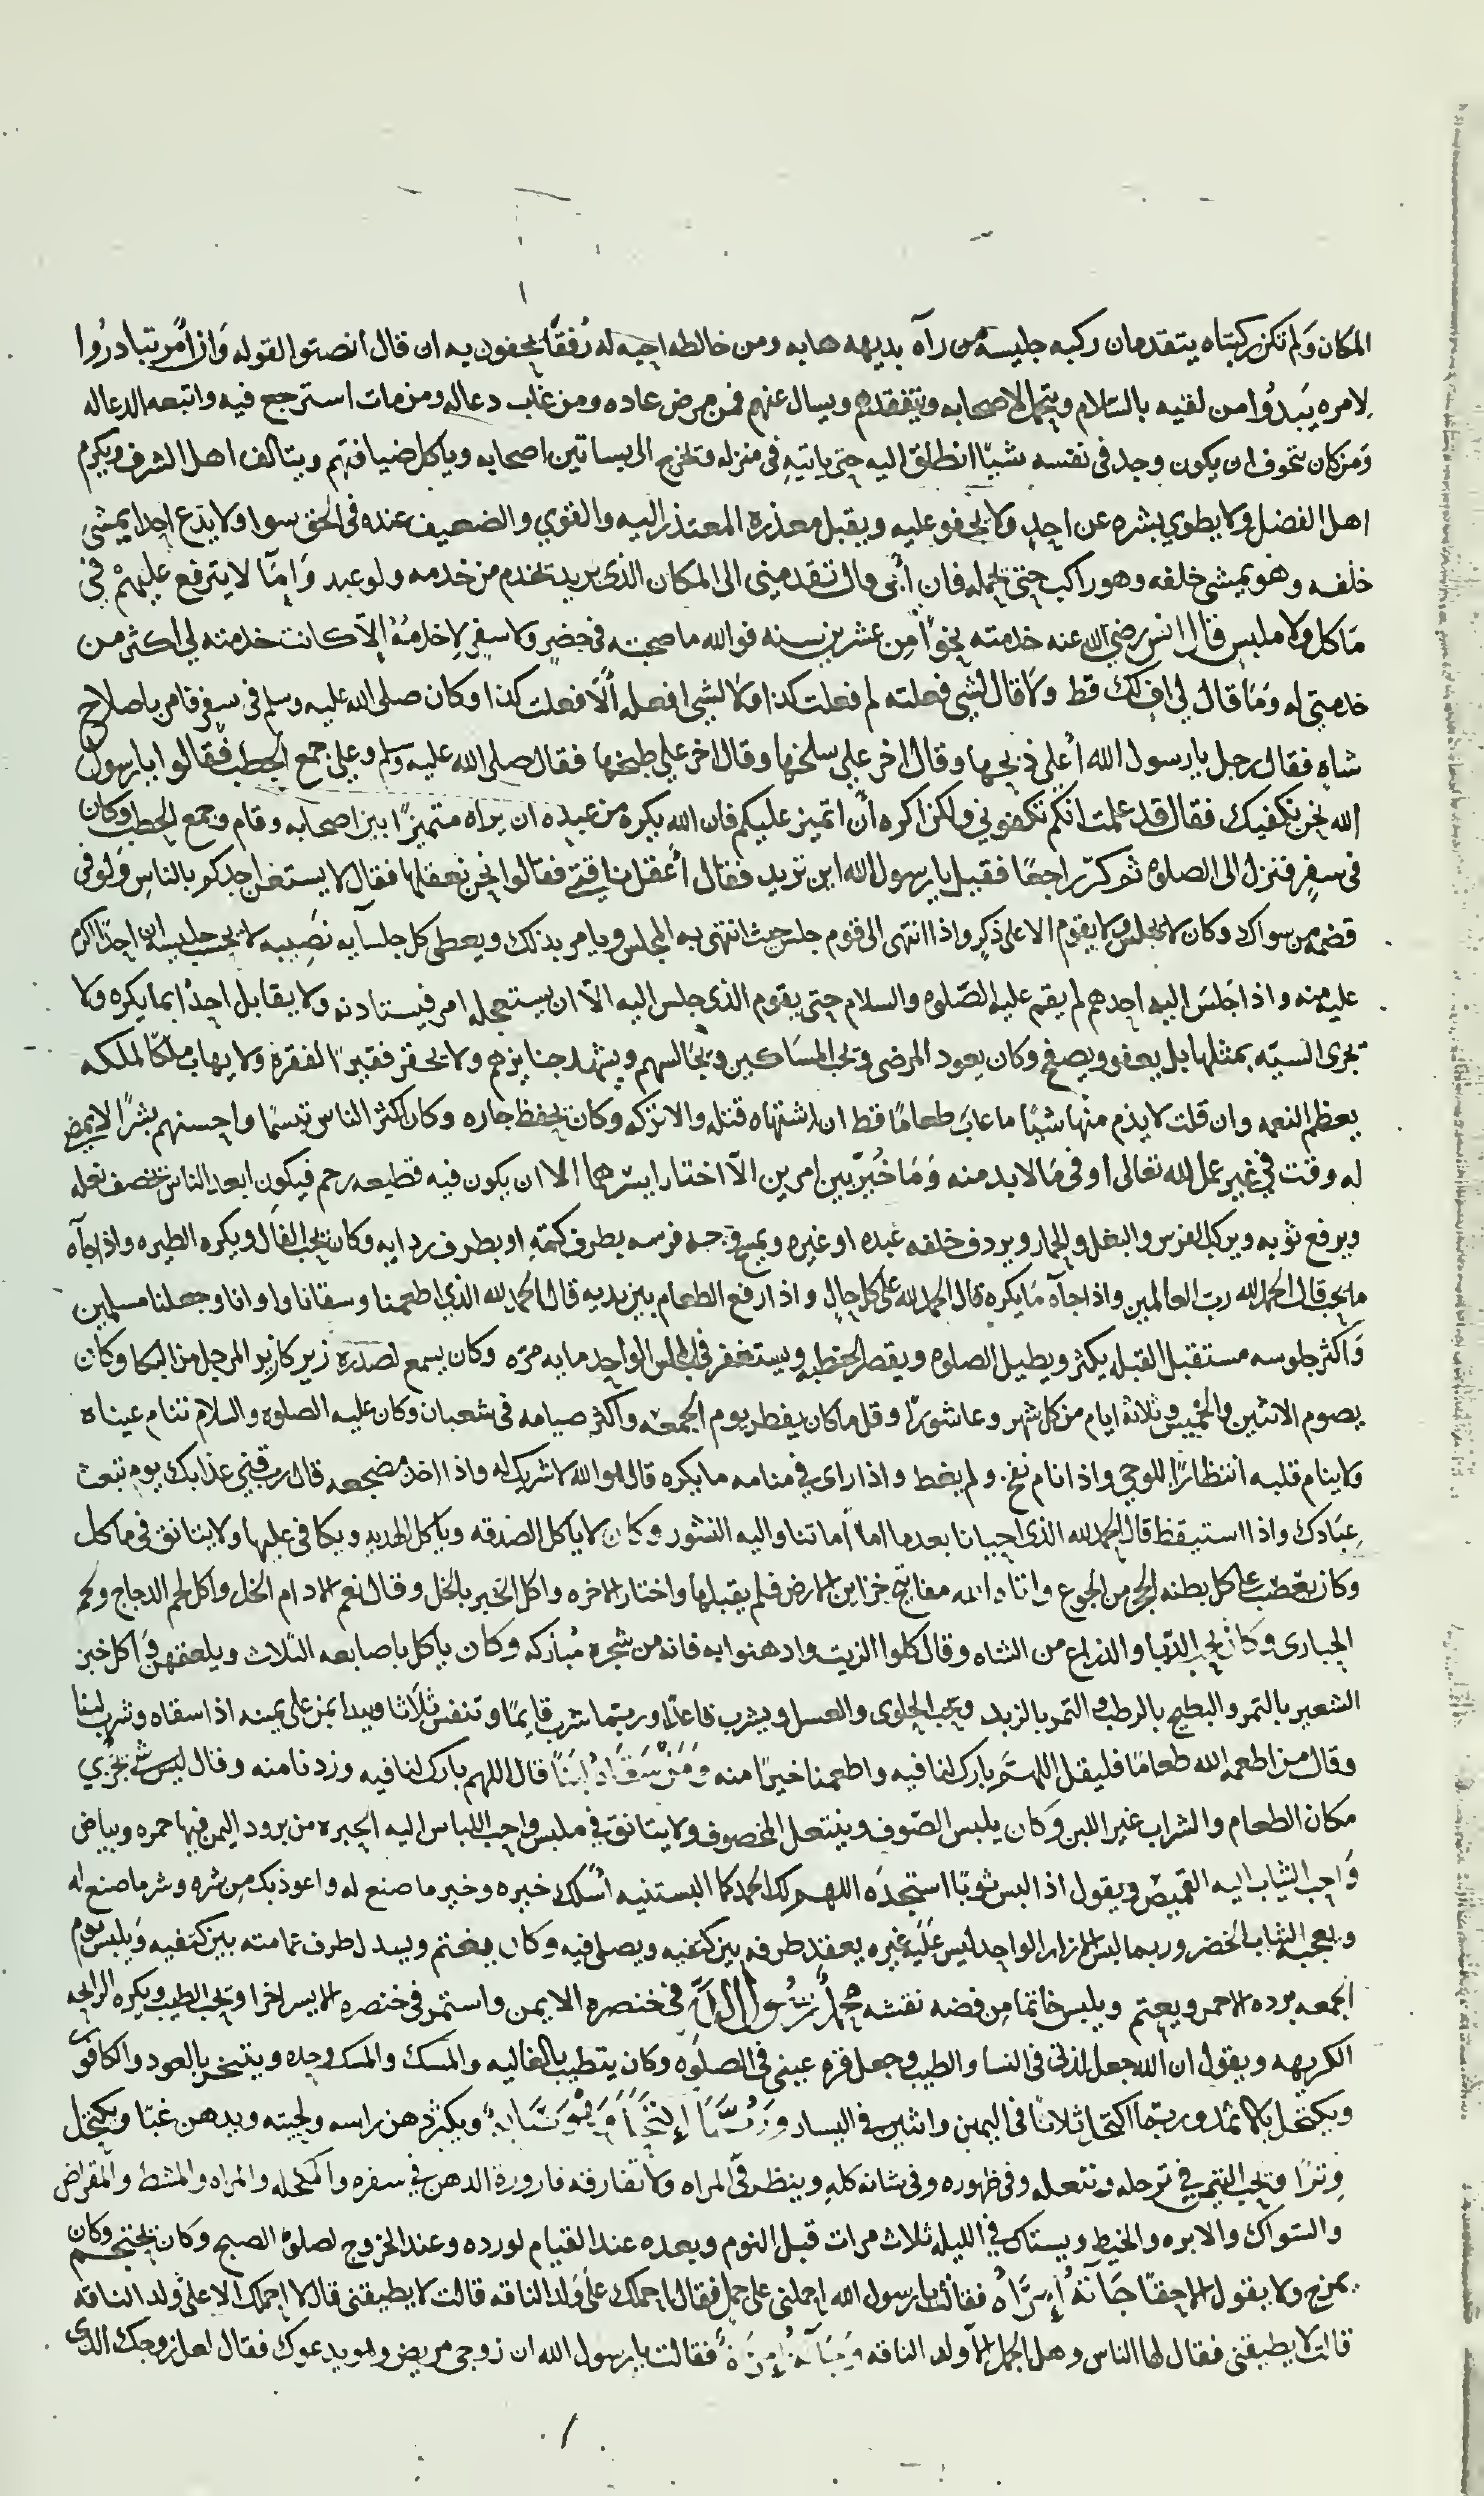 المكان ولم تكن ركبتاه يتقدمان ركبه جليسه من رآه بديهه هابه ومن خالطه احبه له رفقا يحفون به ان قال انصتوا لقوله وان امر تبادروا
لامره يبدوا من لقيه بالسلام ويتجمل لاصحابه ويتفقدهم ويسال عنهم فمن مرض عاده ومن غاب دعاله ومن مات استرجع فيه واتبعه الدعاله
ومن كان يتخوف ان يكون وجد في نفسه شيا انطلق اليه حتى ياتيه في منزله ويخرج الى بساتين اصحابه وياكل ضيافتهم ويتالف اهل الشرف ويكرم
اهل الفضل ولا يطوي بشره عن احد ولا يجفو عليه ويقبل معذرة المعتذر اليه والقوي والضعيف عنده في الحق سوا ولا يدع احدا يمشي
خلفه وهو يمشي خلفه وهو راكب حتى يحمله فان أبى قال تقدمني الى المكان الذي تريد يخدم من خدمه وله عبيد وامآ لا يترفع عليهم في
ماكل ولا ملبس قال انس رضي الله عنه خدمته نحوا من عشر سنه فوالله ما صحبته في حضر ولا سفر لاخدمه الا كانت خدمته لي اكثر من
خدمتي له وما قال لي اف لك قط ولا قال لشي فعلته لم فعلت كذا ولا لشي لم افعله ألا فعلت كذا وكان صلى الله عليه وسلم في سفر فامر باصلاح
شاه فقال رجل يا رسول الله أعلي ذبحها وقال اخر علي سلخها وقال اخر علي طبخها فقال صلى الله عليه وسلم وعلي جمع الحطب فقالوا يا رسول
الله نحن نكفيك فقال قد علمت انكم تكفوني ولكن اكره أن اتميز عليكم فان الله يكره من عبده ان يراه متميزا بين اصحابه وقام وجمع الحطب وكان
في سفر فنزل الى الصلوة ثم كر راجعا فقيل يا رسول الله اين تريد فقال أعقل ناقتي فقالوا نحن نعقلها فقال لا يستعن احدكم بالناس ولو في
قضمه من سواك وكان لا يجلس ولا يقوم الا على ذكر واذا انتهى الى قوم جلس حيث انتهى به المجلس ويامر بذلك ويعطي كل جلسآيه نصيبه لا يحسب جليسه ان احدا اكرم
عليه منه واذا جلس اليه احدهم لم يقم عليه الصلوة والسلام حتى يقوم الذي جلس اليه الا ان يستعجله امر فيستاذنه ولا يقابل احدا بما يكره ولا
يجزى السيه بمثلها بل يعفو ويصفح وكان يعود المرضى ويحب المساكين ويجالسهم ويشهد جنايزهم ولا يحقر فقيرا لفقره ولا يهاب ملكا لملكه
يعظم النعمه وان قلت لا يذم منها شيا ما عاب طعاما قط ان اشتهاه قتله والا تركه وكان يحفظ جاره وكان اكثر الناس تبسما واحسنهم بشرا لا يمضي
له وقت في غير عمل لله تعالى او في ما لا بد منه وما خير بين امرين الا اختار ايسرهما الا ان يكون فيه قطيعه رحم فيكون ابعد الناس يخصف نعله
ويرفع ثوبه ويركب الفرس والبغل والحمار ويردف خلفه عبده او غيره ويمسح وجه فرسه بطرف كمه او بطرف ردايه وكان يحب الفال ويكره الطيره واذا جآه
ما يحب قال الحمد لله رب العالمين واذا جآه ما يكره قال الحمد لله على كل حال واذا رفع الطعام بين يديه قال الحمد لله الذي اطعمنا وسقانا واوانا وجعلنا مسلمين
واكثر جلوسه مستقبل القبله يكثر ويطيل الصلوة ويقصر الخطبه ويستغفر في المجلس الواحد مايه مره وكان يسمع لصدره زير كازيز المرجل من البكا وكان
يصوم الاثنين والخميس وثلاثة ايام من كل شهر وعاشورا وقل ما كان يفطر يوم الجمعه واكثر صيامه في شعبان وكان عليه الصلوة والسلام تنام عيناه
ولا ينام قلبه انتظارا للوحي واذا نام نفخ ولم يغط واذا راى في منامه ما يكره قال هو الله لا شريك له واذا اخذ مضجعه قال رب قني عذابك يوم تبعث
عبادك واذا استيقظ قال الحمد لله الذي احيانا بعد ما اماتنا واليه النشور وكان لا ياكل الصدقه وياكل الهديه ويكافي عليها ولا يتانق في ماكل
وكان يعصب على بطنه الحجر من الجوع واتاه الله مفاتيح خزاين الارض فلم يقبلها واختار الاخره واكل الخبز بالخل وقال نعم الادام الخل واكل لحم الدجاج ولحم
الحبارى وكان يحب الدبا والذراع من الشاه وقال كلوا الزيت وادهنوا به فانه من شجرة مباركه وكان ياكل باصابعه الثلاث ويلعقهن واكل خبز
الشعير بالتمر والبطيخ بالرطب والتمر بالزبد ويحب الحلوى والعسل ويشرب قاعدا وربما شرب قايما وتنفس ثلاثا ويبدا بمن على يمينه اذا سقاه وشرب لبنا
وقال من اطعمه الله طعاما فليقل اللهم بارك لنا فيه واطعمنا خيرا منه ومن سقاه لبنا قال اللهم بارك لنا فيه وزدنا منه وقال ليس شي يجزي
مكان الطعام والشراب غير اللبن وكان يلبس الصوف وينتعل المخصوف ولا يتانق في ملبس واحب اللباس اليه الحبره من برود اليمن فيها حمره وبياض
واحب الثياب اليه القميص ويقول اذا لبس ثوبا استجده اللهم لك الحمد كما البستنيه أسلك خيره وخير ما صنع له واعوذ بك من شره وشر ما صنع له
ويعجبه الثياب الخضر وربما لبس الازار الواحد ليس عليه غيره يعقد طرفه بين كتفيه ويصلي فيه وكان يعتم ويسدل طرف عمامته بين كتفيه ويلبس يوم
الجمعه برده الاحمر ويعتم ويلبس خاتما من فضه نقشه محمد رسول الله في خنصره الايمن واستمر في خنصره الايسر اخرا ويحب الطيب ويكره الرايحه
الكريهه ويقول ان الله جعل لذتي في النسا والطيب وجعل قرة عيني في الصلوه وكان يتطيب بالغاليه والمسك والمسك وحده ويتبخر بالعود والكافور
ويكتحل بالاثمد وربما اكتحل ثلاثا في اليمين واثنين في اليسار وربما اكتحل وهو صايم ويكثر دهن راسه ولحيته ويدهن غبا ويكتحل
وترا ويحب التيمن في ترجله وتنعله وفي ظهوره وفي شانه كله وينظر في المراه ولا تفارقه قارورة الدهن في سفره والمكحله والمراه والمشط والمقراض
والسواك والابره والخيط ويستاك في الليله ثلاث مرات قبل النوم وبعده عند القيام لورده وعند الخروج لصلوة الصبح وكان يحتجم وكان
يمزح ولا يقول الا حقا جآته إمرأه فقالت يا رسول الله احملني على جمل فقال احملك على ولد الناقه قالت لا يطيقني قال لا احملك الا على ولد الناقه
قالت لا يطيقني فقال لها الناس وهل الجمل الا ولد الناقه وجآته امرأه فقالت يا رسول الله ان زوجي مريض وهو يدعوك فقال لعل زوجك الذي